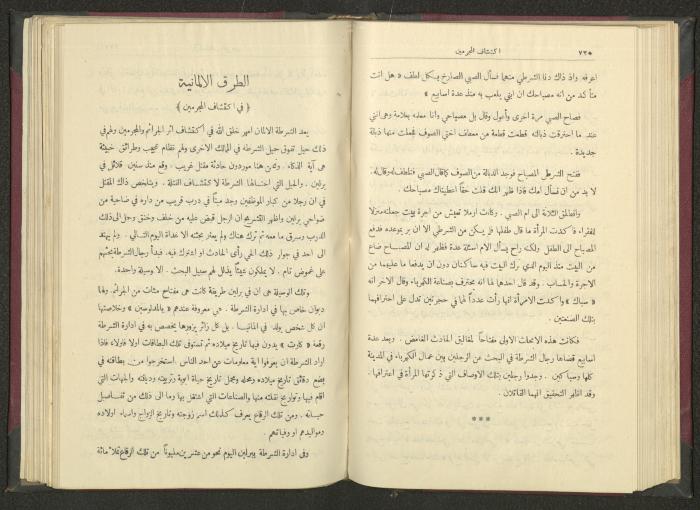 ٧٢٠ اكتشاف المجرمين
اعرفه واذ ذاك دنا الشرطي منهما فسأل الصبي الصارخ بكل لطف « هل انت
متأكد من انه مصباحك ان ابني يلعب به منذ عدة اسابيع »
فصاح الصبي مرة اخرى واعول وقال بل مصباحي وانا معلمه بعلامة وهي انني
عند ما احترقت ذبالته قطعت قطعة من معطف اختي الصوف فجعلت منها ذبالة
جديدة .
ففتح الشرطي المصباح فوجد الذبالة من الصوف كما قال الصبي فتلطف له وقال له
لا بد من ان نسأل امك فاذا ظهر انك قلت حقاً اعطيناك مصباحك .
وانطلق الثلاثة الى ام الصبي . وكانت ارملة تعيش من اجرة بيت جعلته منزلا
للفقراء فاكدت المرأة ما قال طفلها فلم يكن من الشرطي الا ان بر بوعده فدفع
المصباح الى الطفل ولكنه راح يسأل الام اسئلة عدة فظهر له ان المصباح ضاع
من البيت منذ اليوم الذي ترك البيت فيه ساكنان دون ان يدفعا ما عليهما من
الاجرة والحساب . وقد قال احدهما لها انه محترف بصناعة الكهرباء وقال الآخر انه
« سباك » واكدت الامرأة انها رأت عدداً لهما في حجرتين تدل على احترافهما
بتلك الصنعتين .
فكانت هذه الابحاث الاولى مفتاحاً لمغاليق الحادث الغامض . وبعد عدة
اسابيع قضاها رجال الشرطة في البحث عن الرجلين بين عمال الكهرباء في المدينة
كلها وسباكين . وجدوا رجلين بتلك الاوصاف التي ذكرتها المرأة في اعترافها .
وقد اظهر التحقيق انهما القاتلان .
***
الطرق الالمانية
﴿ في اكتشاف المجرمين ﴾
يعد الشرطة الالمان امهر خلق الله في اكتشاف اثر الجرائم والمجرمين ولهم في
ذلك حيل تفوق حيل الشرطة في الممالك الاخرى ولهم نظام عجيب وطرائق خبيئة
هي آية الذكاء . ونحن هنا موردون حادثة مقتل غريب . وقع منذ سنين قلائل في
برلين . والحيل التي احتملها الشرطة لاكتشاف القتلة . ويتلخص ذاك المقتل
في ان رجلا من كبار الموظفين وجد ميتاً في درب قريب من داره في ضاحية من
ضواحي برلين واظهر التشريح ان الرجل قبض عليه من خلف وخنق وحمل الى ذلك
الدرب وسرق ما معه ثم ترك هناك ولم يعثر بجثته الا غداة اليوم التالي . ولم يهتد
الى احد في جوار ذلك الحي رأى الحادث او اشترك فيه . فبدأ رجال الشرطة بحثهم
على غموض تام . لا يملكون شيئاً يذلل لهم سبيل البحث . الا وسيلة واحدة .
وتلك الوسيلة هي ان في برلين طريقة كانت هي مفتاح مئات من الجرائم ولها
ديوان خاص بها في ادارة الشرطة . هي معروفة عندهم « بالمدلوسين » وخلاصتها
ان كل شخص يولد في المانيا . بل كل زائر يزورها يخصص به في ادارة الشرطة
رقعة « كارت » يدون فيها تاريخ ميلاده ثم تستوفى تلك البطاقات اولا فاولا فاذا
اراد الشرطة ان يعرفوا اية معلومات عن احد الناس . استخرجوا من بطاقته في
بضع دقائق تاريخ ميلاده ومحله ومجمل تاريخ حياة ابويه وتربيته وديانته والجهات التي
اقام فيها وتواريخ نقلته منها والصناعات التي اشتغل بها وما الى ذلك من تفاصيل
حياته . ومن تلك الرقاع يعرف كذلك اسم زوجته وتاريخ الزواج واسماء اولاده
ومواليدهم او وفياتهم .
وفي ادارة الشرطة ببرلين اليوم نحو من عشرين مليوناً من تلك الرقاع تملأ مائة